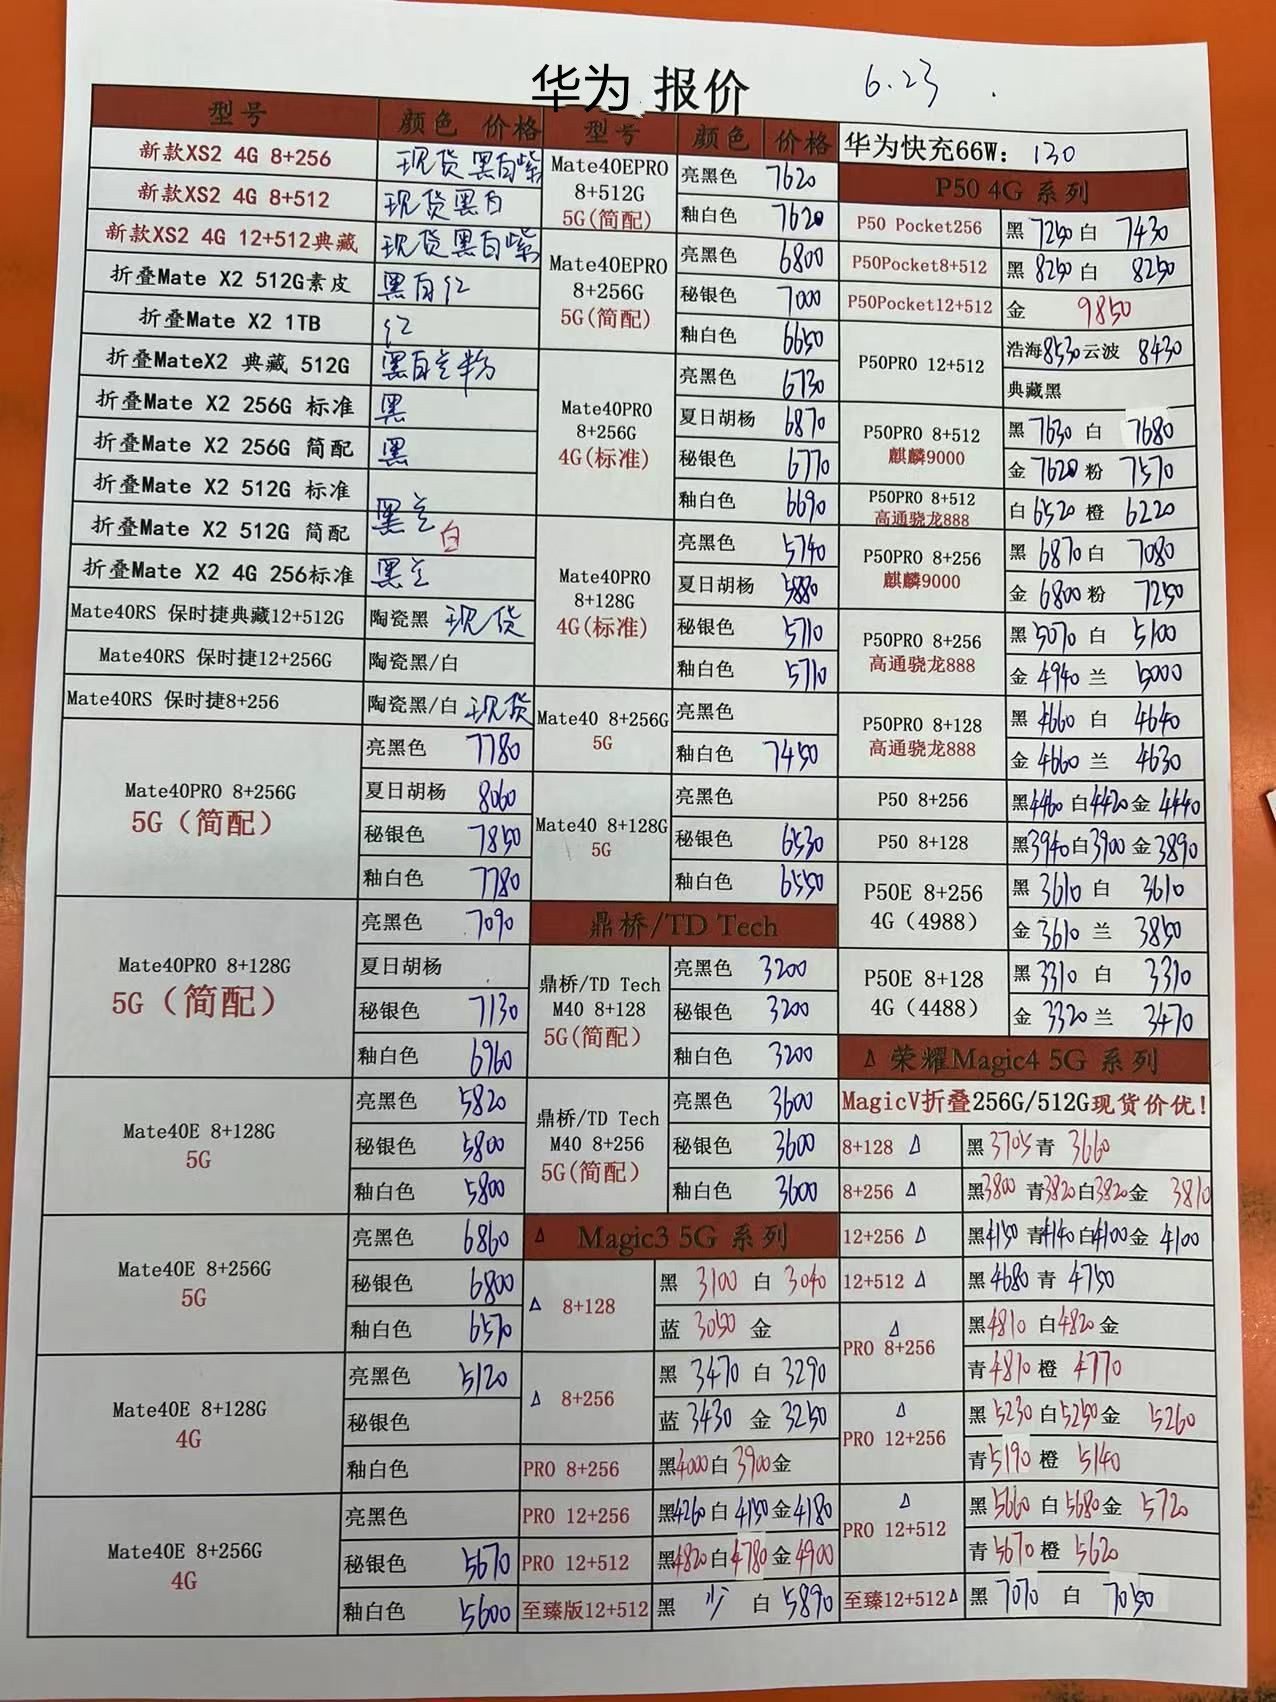 华为 报价
6.23
型号 颜色 价格
新款XS2 4G 8+256 现货 黑白紫
新款XS2 4G 8+512 现货 黑白
新款XS2 4G 12+512典藏 现货 黑白紫
折叠Mate X2 512G素皮 黑白红
折叠Mate X2 1TB 红
折叠MateX2 典藏 512G 黑白兰粉
折叠Mate X2 256G 标准 黑
折叠Mate X2 256G 简配 黑
折叠Mate X2 512G 标准
黑兰
折叠Mate X2 512G 简配 白
折叠Mate X2 4G 256标准 黑兰
Mate40RS 保时捷典藏12+512G 陶瓷黑 现货
Mate40RS 保时捷12+256G 陶瓷黑/白
Mate40RS 保时捷8+256 陶瓷黑/白 现货
Mate40PRO 8+256G
5G（简配）
亮黑色 7780
夏日胡杨 8060
秘银色 7850
釉白色 7780
Mate40PRO 8+128G
5G（简配）
亮黑色 7090
夏日胡杨
秘银色 7130
釉白色 6960
Mate40E 8+128G
5G
亮黑色 5820
秘银色 5800
釉白色 5800
Mate40E 8+256G
5G
亮黑色 6860
秘银色 6800
釉白色 6570
Mate40E 8+128G
4G
亮黑色 5120
秘银色
釉白色
Mate40E 8+256G
4G
亮黑色
秘银色 5670
釉白色 5600
型号 颜色 价格
Mate40EPRO
8+512G
5G(简配)
亮黑色 7620
釉白色 7620
Mate40EPRO
8+256G
5G(简配)
亮黑色 6800
秘银色 7000
釉白色 6650
Mate40PRO
8+256G
4G(标准)
亮黑色 6730
夏日胡杨 6870
秘银色 6770
釉白色 6690
Mate40PRO
8+128G
4G(标准)
亮黑色 5740
夏日胡杨 5880
秘银色 5710
釉白色 5710
Mate40 8+256G
5G
亮黑色
釉白色 7450
Mate40 8+128G
5G
亮黑色
秘银色 6530
釉白色 6550
鼎桥/TD Tech
鼎桥/TD Tech
M40 8+128
5G(简配)
亮黑色 3200
秘银色 3200
釉白色 3200
鼎桥/TD Tech
M40 8+256
5G(简配)
亮黑色 3600
秘银色 3600
釉白色 3600
Δ Magic3 5G 系列
Δ 8+128
黑 3100 白 3040
蓝 3050 金
Δ 8+256
黑 3470 白 3290
蓝 3430 金 3250
PRO 8+256 黑4000白3900金
PRO 12+256 黑4260白4150金4180
PRO 12+512 黑4820白4780金4900
至臻版12+512 黑 少 白 5890
华为快充66W：130
P50 4G 系列
P50 Pocket256 黑 7250 白 7430
P50Pocket8+512 黑 8250 白 8250
P50Pocket12+512 金 9850
P50PRO 12+512
浩海8530云波 8430
典藏黑
P50PRO 8+512
麒麟9000
黑 7630 白 7680
金 7620 粉 7570
P50PRO 8+512
高通骁龙888
白 6520 橙 6220
P50PRO 8+256
麒麟9000
黑 6870 白 7080
金 6800 粉 7250
P50PRO 8+256
高通骁龙888
黑 5070 白 5100
金 4940 兰 5000
P50PRO 8+128
高通骁龙888
黑 4660 白 4640
金 4660 兰 4630
P50 8+256 黑4460白4420金4440
P50 8+128 黑3940白3900金3890
P50E 8+256
4G（4988）
黑 3610 白 3610
金 3610 兰 3850
P50E 8+128
4G（4488）
黑 3310 白 3310
金 3320 兰 3470
Δ 荣耀Magic4 5G 系列
MagicV折叠256G/512G现货价优!
8+128 Δ 黑 3705 青 3660
8+256 Δ 黑3800 青3820白3820金 3810
12+256 Δ 黑4150青4140白4100金 4100
12+512 Δ 黑 4680 青 4750
Δ
PRO 8+256
黑4810 白4820金
青4810 橙 4770
Δ
PRO 12+256
黑 5230 白5250金 5260
青5190 橙 5140
Δ
PRO 12+512
黑 5660 白5680金 5720
青 5670 橙 5620
至臻12+512Δ 黑 7070 白 7050